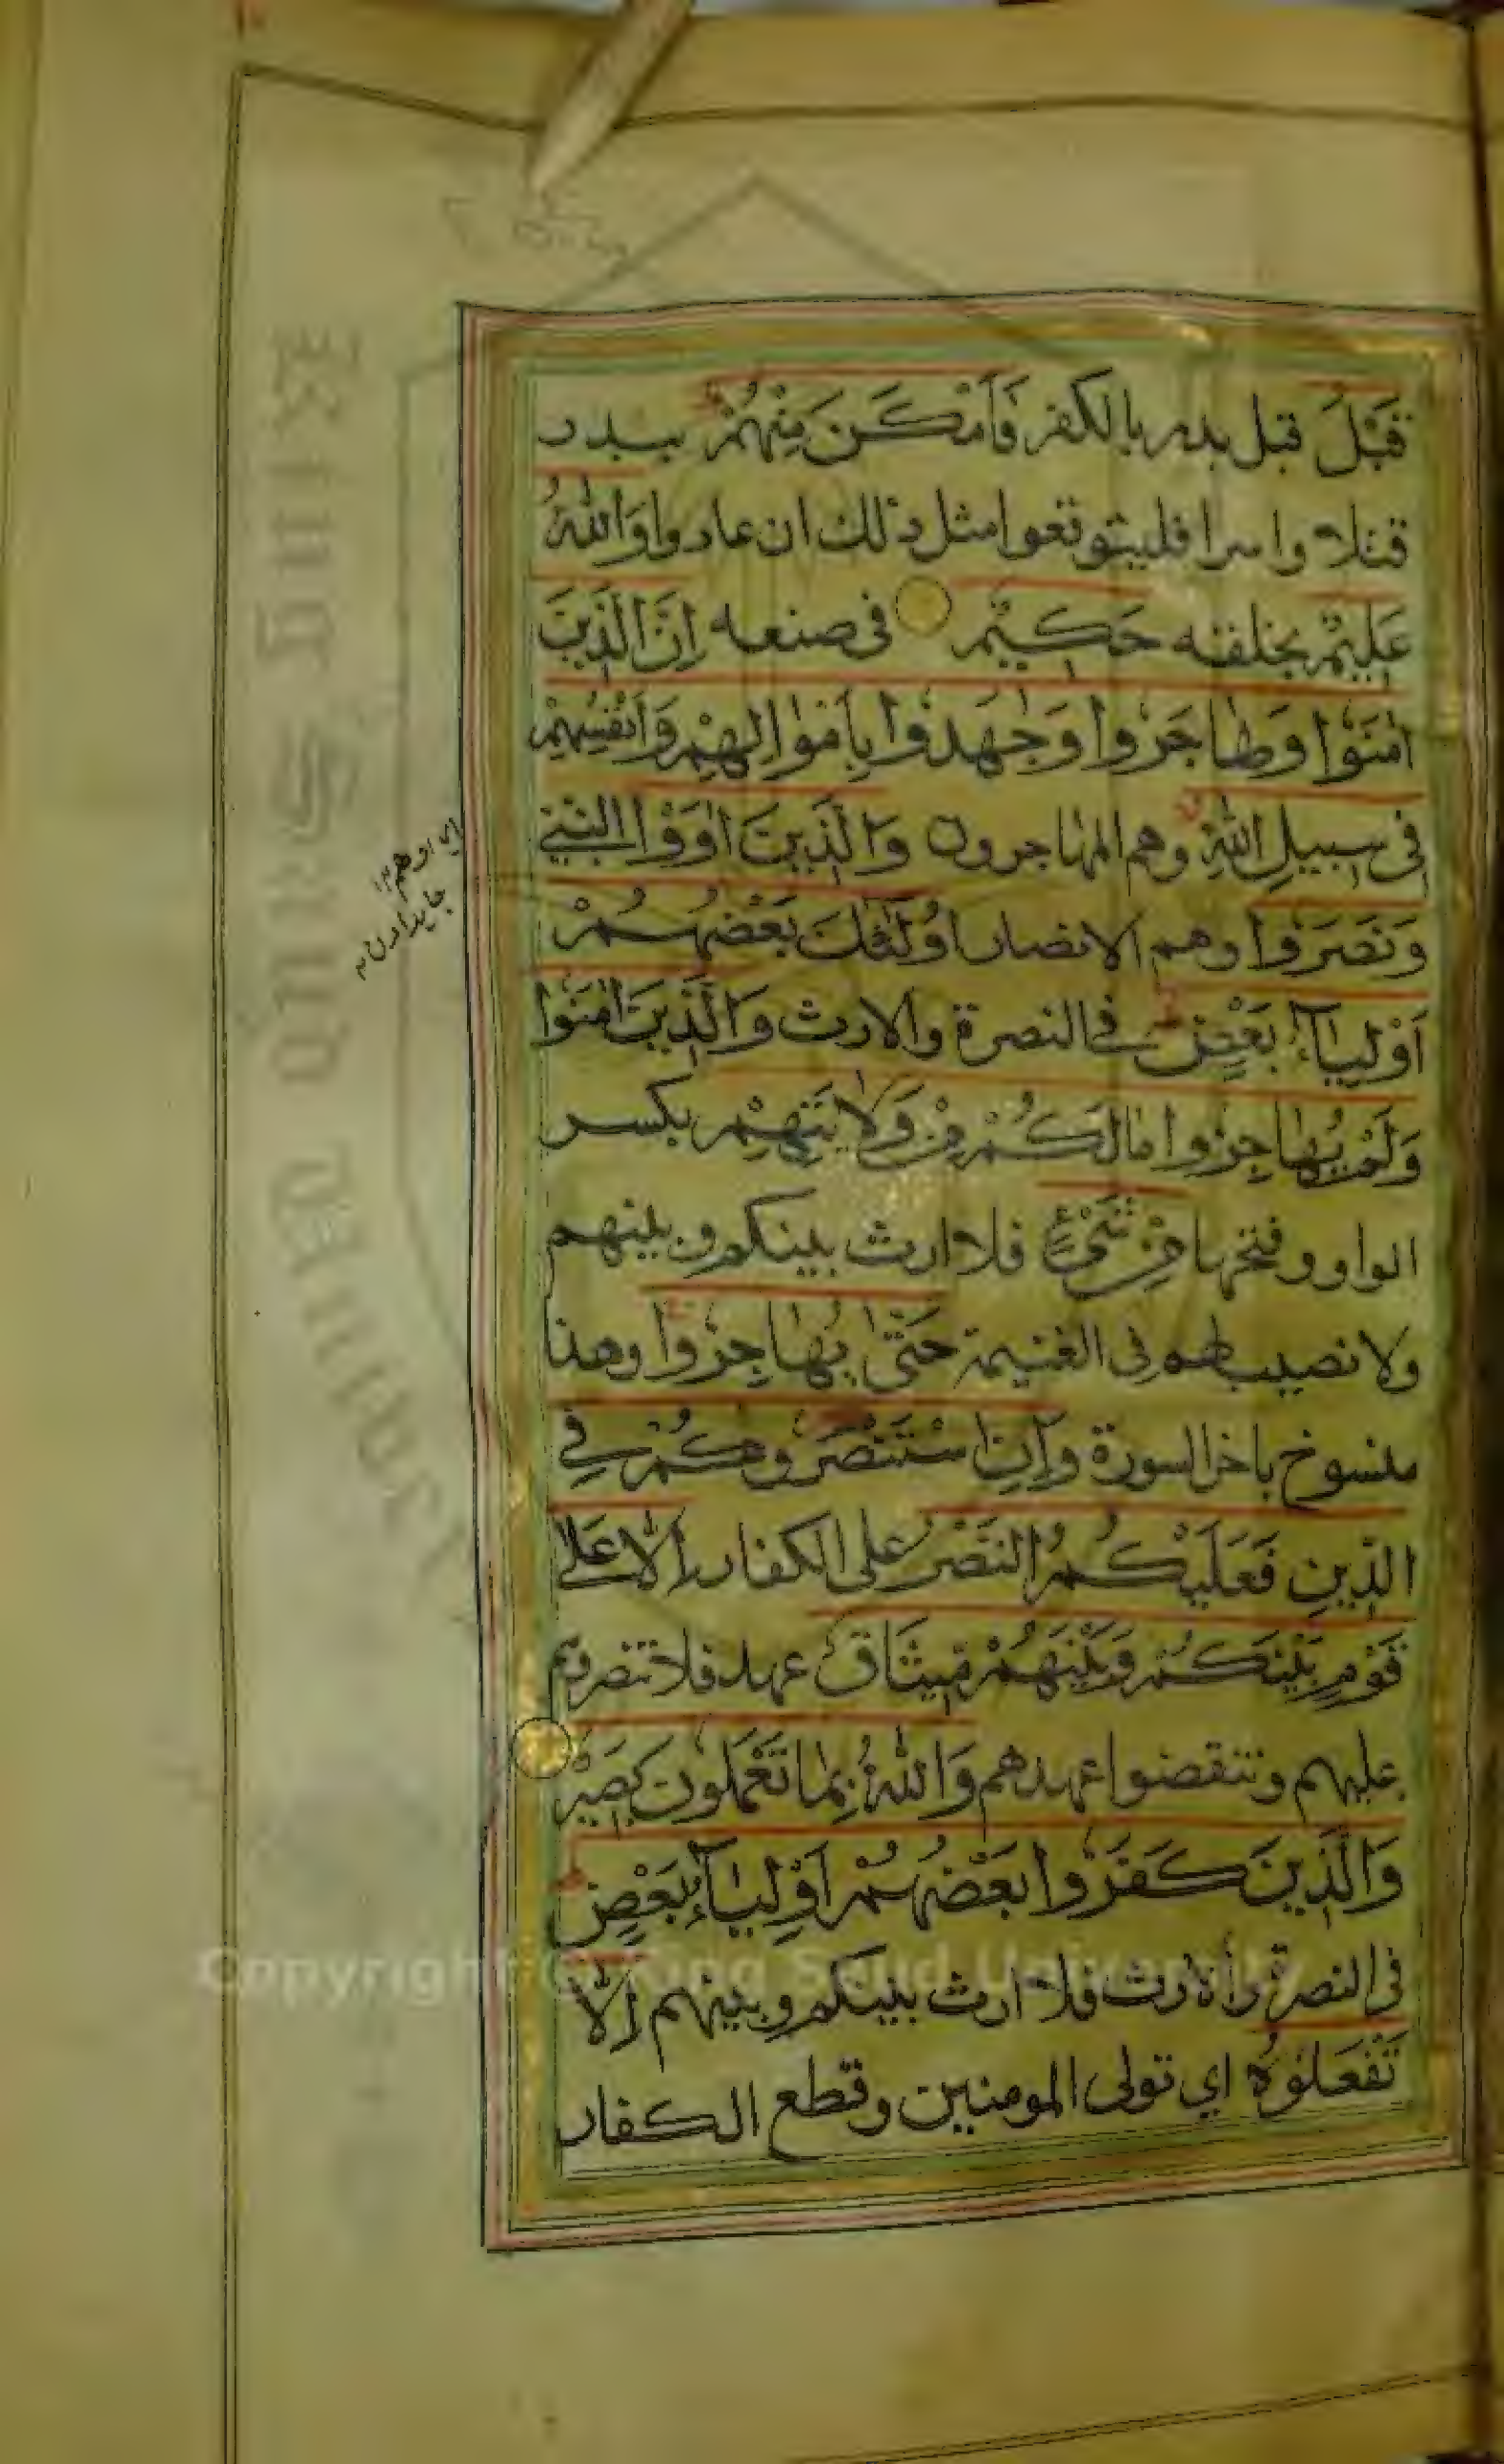 قَبْلُ قبل بدر بالكفر فَأَمْكَنَ مِنْهُمْ ببدر
قتلا واسرا فليتوقعوا مثل ذلك ان عادوا وَاللّٰهُ
عَلِيْمٌ بخلقه حَكِيْمٌ في صنعه اِنَّ الَّذِيْنَ
اٰمَنُوْا وَهَاجَرُوْا وَجٰهَدُوْا بِاَمْوَالِهِمْ وَاَنْفُسِهِمْ
فِى سَبِيلِ اللّٰهِ وهم المهاجرون وَالَّذِيْنَ اٰوَوْا النبي
وَنَصَرُوْا وهم الانصار اُولٰئِكَ بَعْضُهُمْ
اَوْلِيَآءُ بَعْضٍ في النصرة والارث وَالَّذِيْنَ اٰمَنُوْا
وَلَمْ يُهَاجِرُوْا مَالَكُمْ مِنْ وَلَايَتِهِمْ بكسر
الواو وفتحها مِنْ شَيْءٍ فلا ارث بينكم وبينهم
ولا نصيب لهم في الغنيمة حَتّٰى يُهَاجِرُوْا وهذا
منسوخ باخر السورة وَاِنِ اسْتَنْصَرُوْكُمْ فِي
الدِّيْنِ فَعَلَيْكُمُ النَّصْرُ على الكفار اِلَّا عَلٰى
قَوْمٍ بَيْنَكُمْ وَبَيْنَهُمْ مِيْثَاقٌ عهد فلا تنصروهم
عليهم وتنقضوا عهدهم وَاللّٰهُ بِمَا تَعْمَلُوْنَ بَصِيْرٌ
وَالَّذِيْنَ كَفَرُوْا بَعْضُهُمْ اَوْلِيَآءُ بَعْضٍ
في النصرة والارث فلا ارث بينكم وبينهم اِلَّا
تَفْعَلُوْهُ اي تولى المومنين وقطع الكفار
Copyright © King Saud University
King Saud University